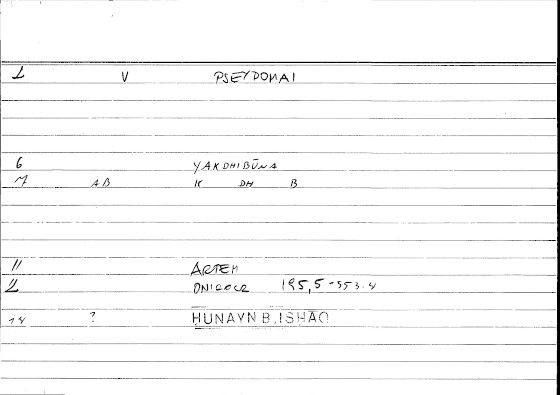 1 V PSEYDONAI
6 YAKDHIBŪNA
7 AB K DH B
11 ARTEM
12 ONIROCR 195,5-353.4
14 ? HUNAYN B. ISHĀQ